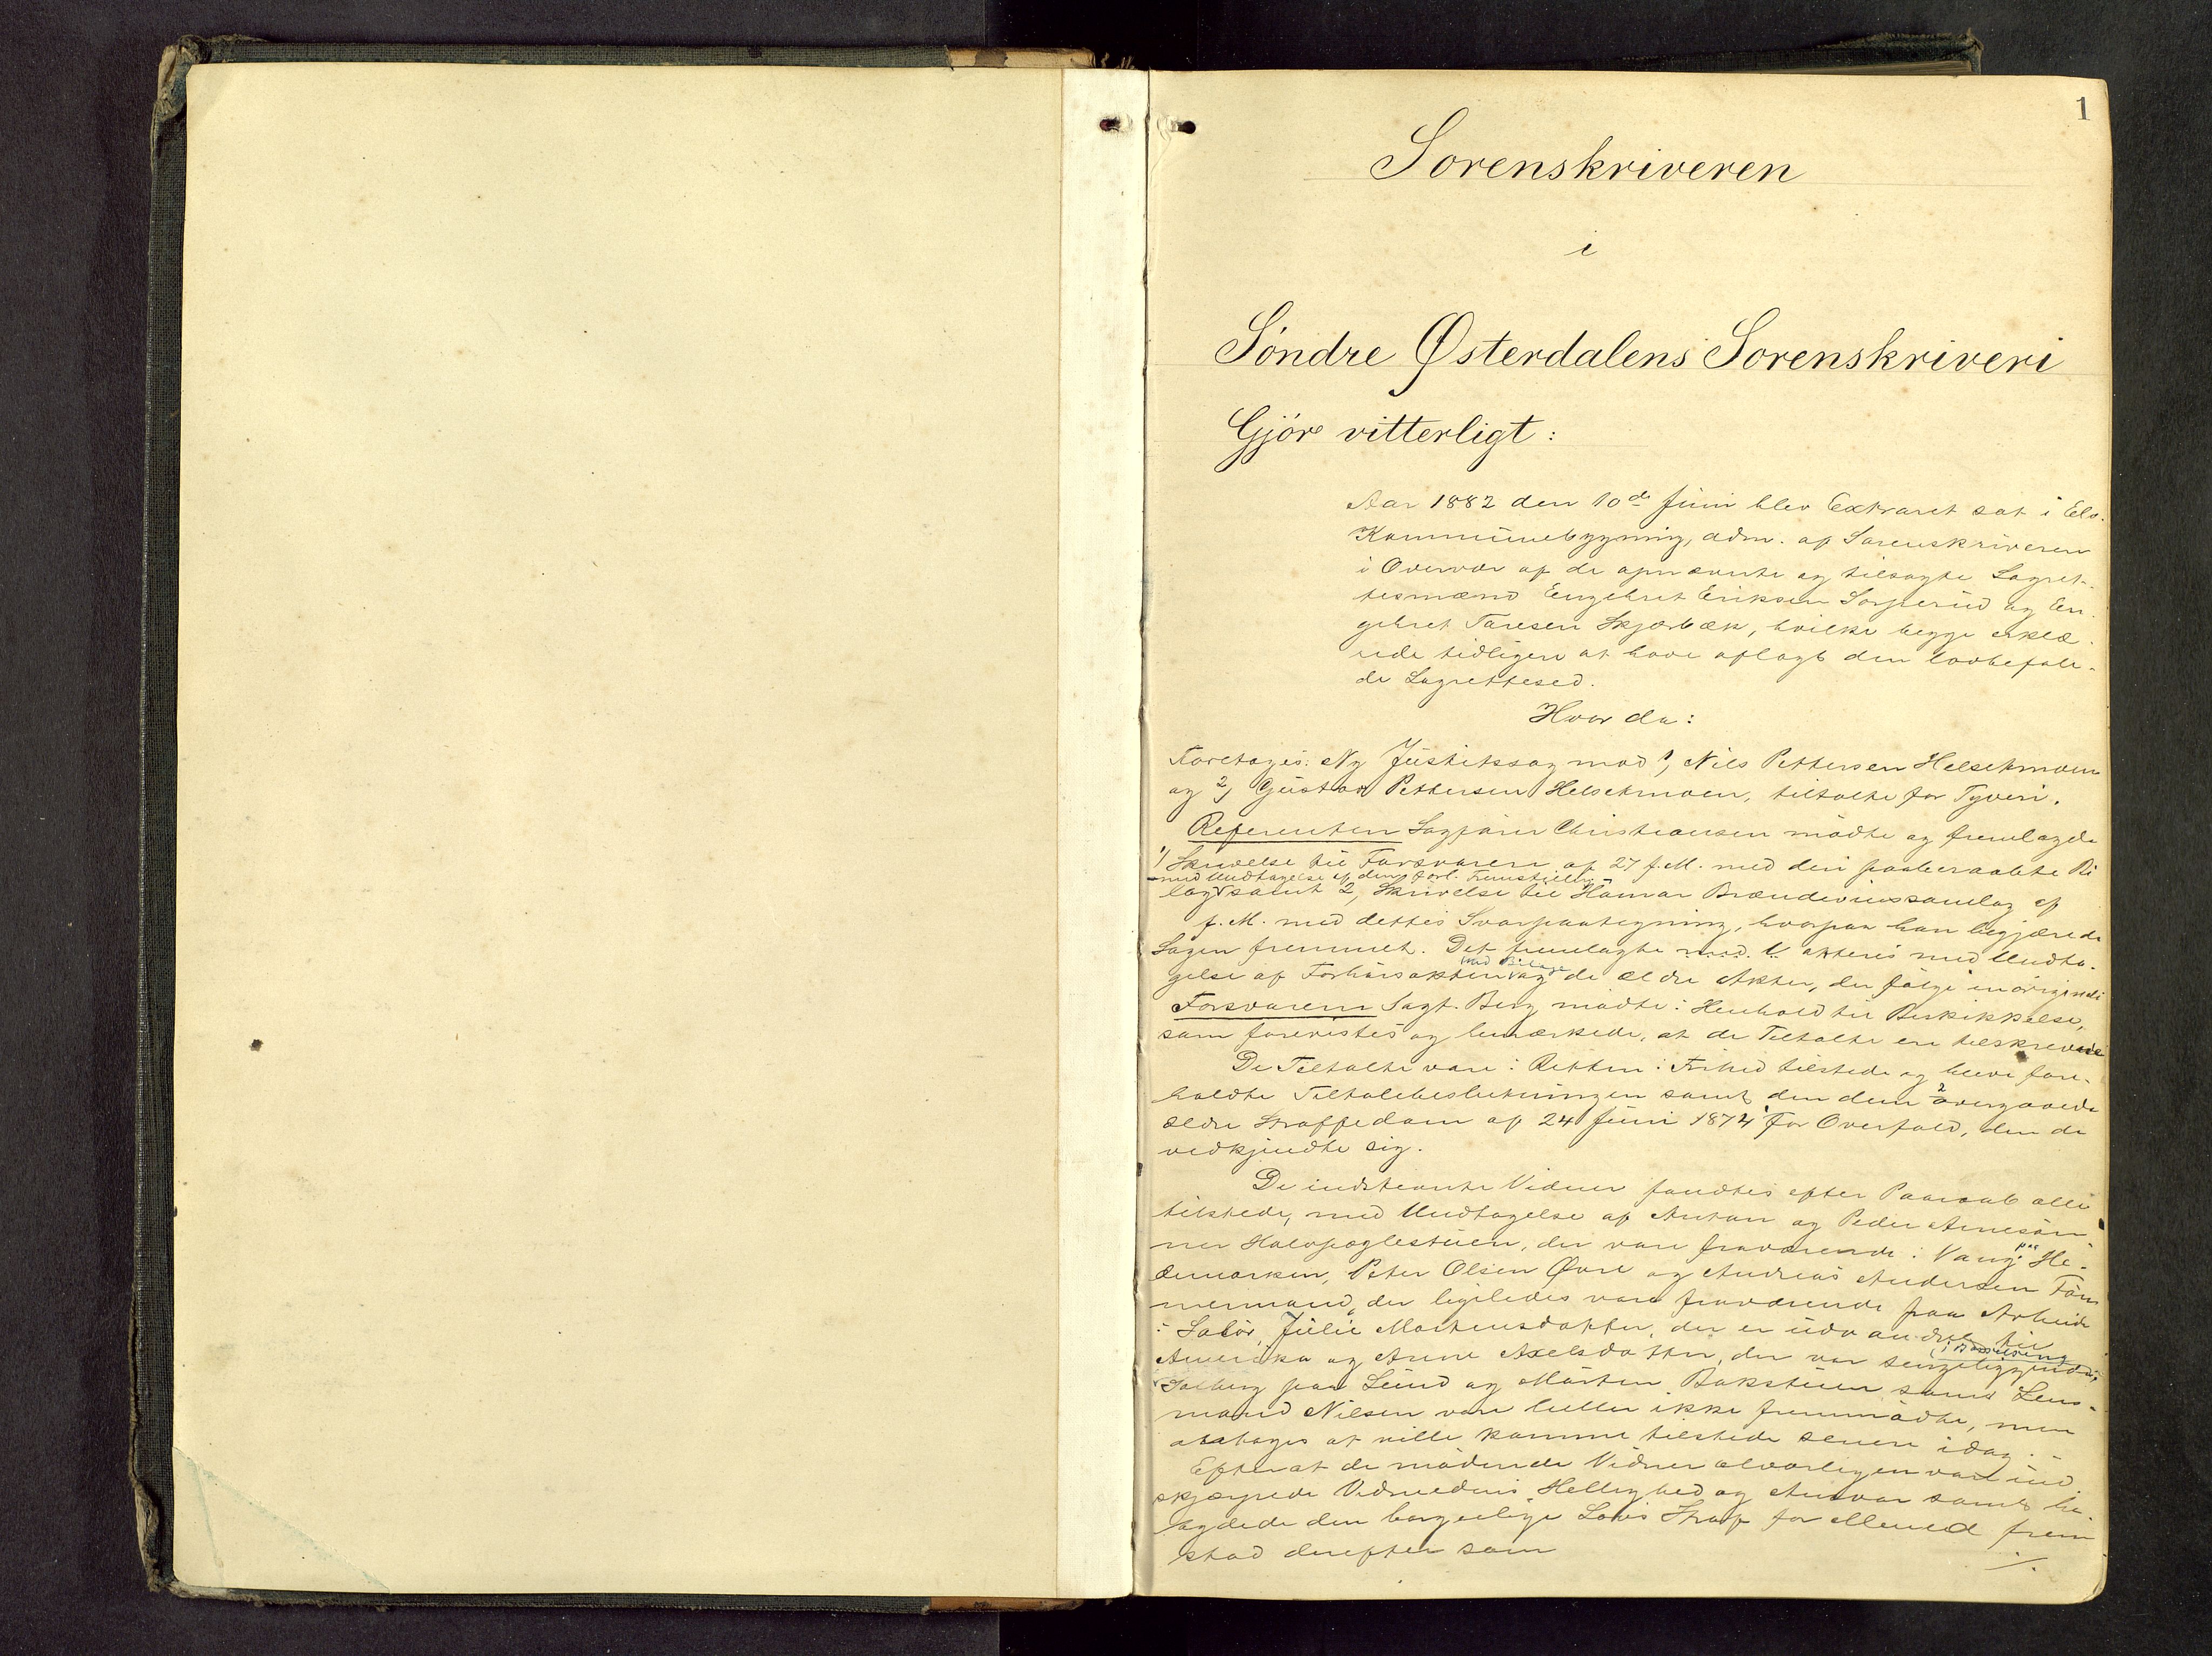 1
Sorenskriveren
i
Söndre Østerdalens Sorenskriveri
Gjör vitterligt:
Aar 1882 den 10de Juni blev Extraret sat i Elv.
Kommunebygning, adm. af Sorenskriveren
i Overvær af de opnævnte og tilsagte Lagret-
tesmænd Engebret Eriksen Sorperud og En
gebret Taresen Skjærbæk, hvilke begge erklæ-
rede tidligere at have aflagt den lovbefale-
de Lagrettesed.
Hvor da:
Foretoges: Ny Justitssag mod 1, Nils Pettersen Helsetmoen
og 2, Gustav Pettersen Helsetmoen, tiltalte for Tyveri.
Referenten Sagförer Christiansen mödte og fremlagde
1) Skrivelse til Forsvareren af 27 f.M. med den paaberaabte Bi
med Undtagelse af den forl. Fremstilling
lag samt 2, Skrivelse til Hamar Brændevinssamlag af
f.M. med dettes Svarpaategning, hvorpaa han begjærede
Sagen fremmet. Det fremlagte med. V. akteres med Undta-
gelse af Forhörsakten og de ældre Akter, der fölge in originali
med Bilage
Forsvareren Sagf. Berg mödte i Henhold til Beskikkelse,
som forevistes og bemærkede, at de Tiltalte ere tilskrevne
De Tiltalte vare i Retten i Frihed tilstede og bleve fore-
holdte Tiltalebeslutningen samt den dem 2 overgaaede
ældre Straffedom af 24 Juni 1874 for Overfald, den de
vedkjendte sig.
De indstevnte Vidner fandtes efter Paaraab alle
tilstede, med Undtagelse af Anton og Peder Arnesön-
ner Halvfaglestuen, der vare fraværende i Vang paa He-
demarken, Peter Olsen Øvre og Andreas Andersen Töm
mermand, der ligeledes vare fraværende paa Arbeide
i Solör, Julie Mortensdatter, der er udvandret til
Amerika og Anne Axelsdatter, der var sengeliggende,
Solberg paa Lund og Morten Bakstuen samt Lens-
mand Nilsen vare heller ikke fremmödte, men
antages at ville komme tilstede senere idag.
Efterat de mödende Vidner alvorligen vare ind
skjærpede Vidneedens Hellighed og Ansvar samt be-
tydede den borgerlige Lovs Straf for Meened frem
stod derefter som
./.